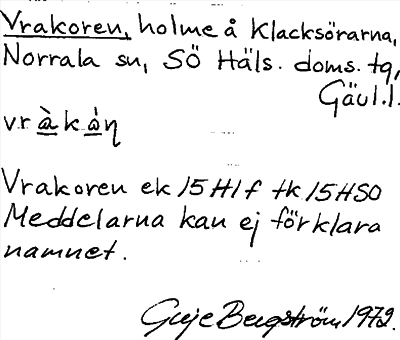 Vrakoren, holme å Klacksörarna,
Norrala sn, SÖ Häls. doms. tg,
Gävl.l.
vràkàn
Vrakoren ek 15H1f tk 15HSO
Meddelarna kan ej förklara
namnet.
Bergström 1972.